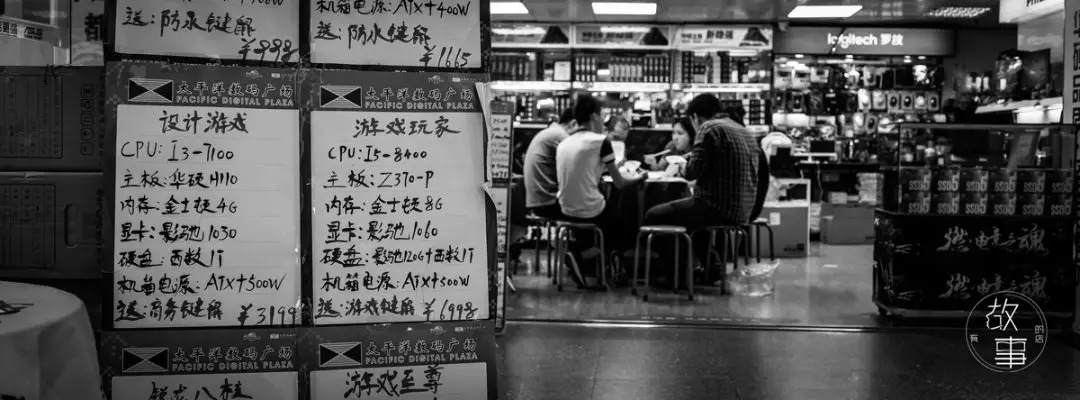 送:防水键鼠
¥998
机箱电源:ATX+400W
送:防水键鼠
¥1665
太平洋数码广场
PACIFIC DIGITAL PLAZA
设计游戏
CPU:I3-7100
主板:华硕H110
内存:金士顿4G
显卡:影驰1030
硬盘:西数1T
机箱电源:ATX+500W
送:商务键鼠
¥3199
太平洋数码广场
PACIFIC DIGITAL PLAZA
游戏玩家
CPU:I5-8400
主板:Z370-P
内存:金士顿8G
显卡:影驰1060
硬盘:影驰120G+西数1T
机箱电源:ATX+500W
送:游戏键鼠
¥6998
太平洋数码广场
PACIFIC DIGITAL PLAZA
太平洋数码广场
PACIFIC DIGITAL PLAZA
游戏至尊
logitech 罗技
故事
有
的店